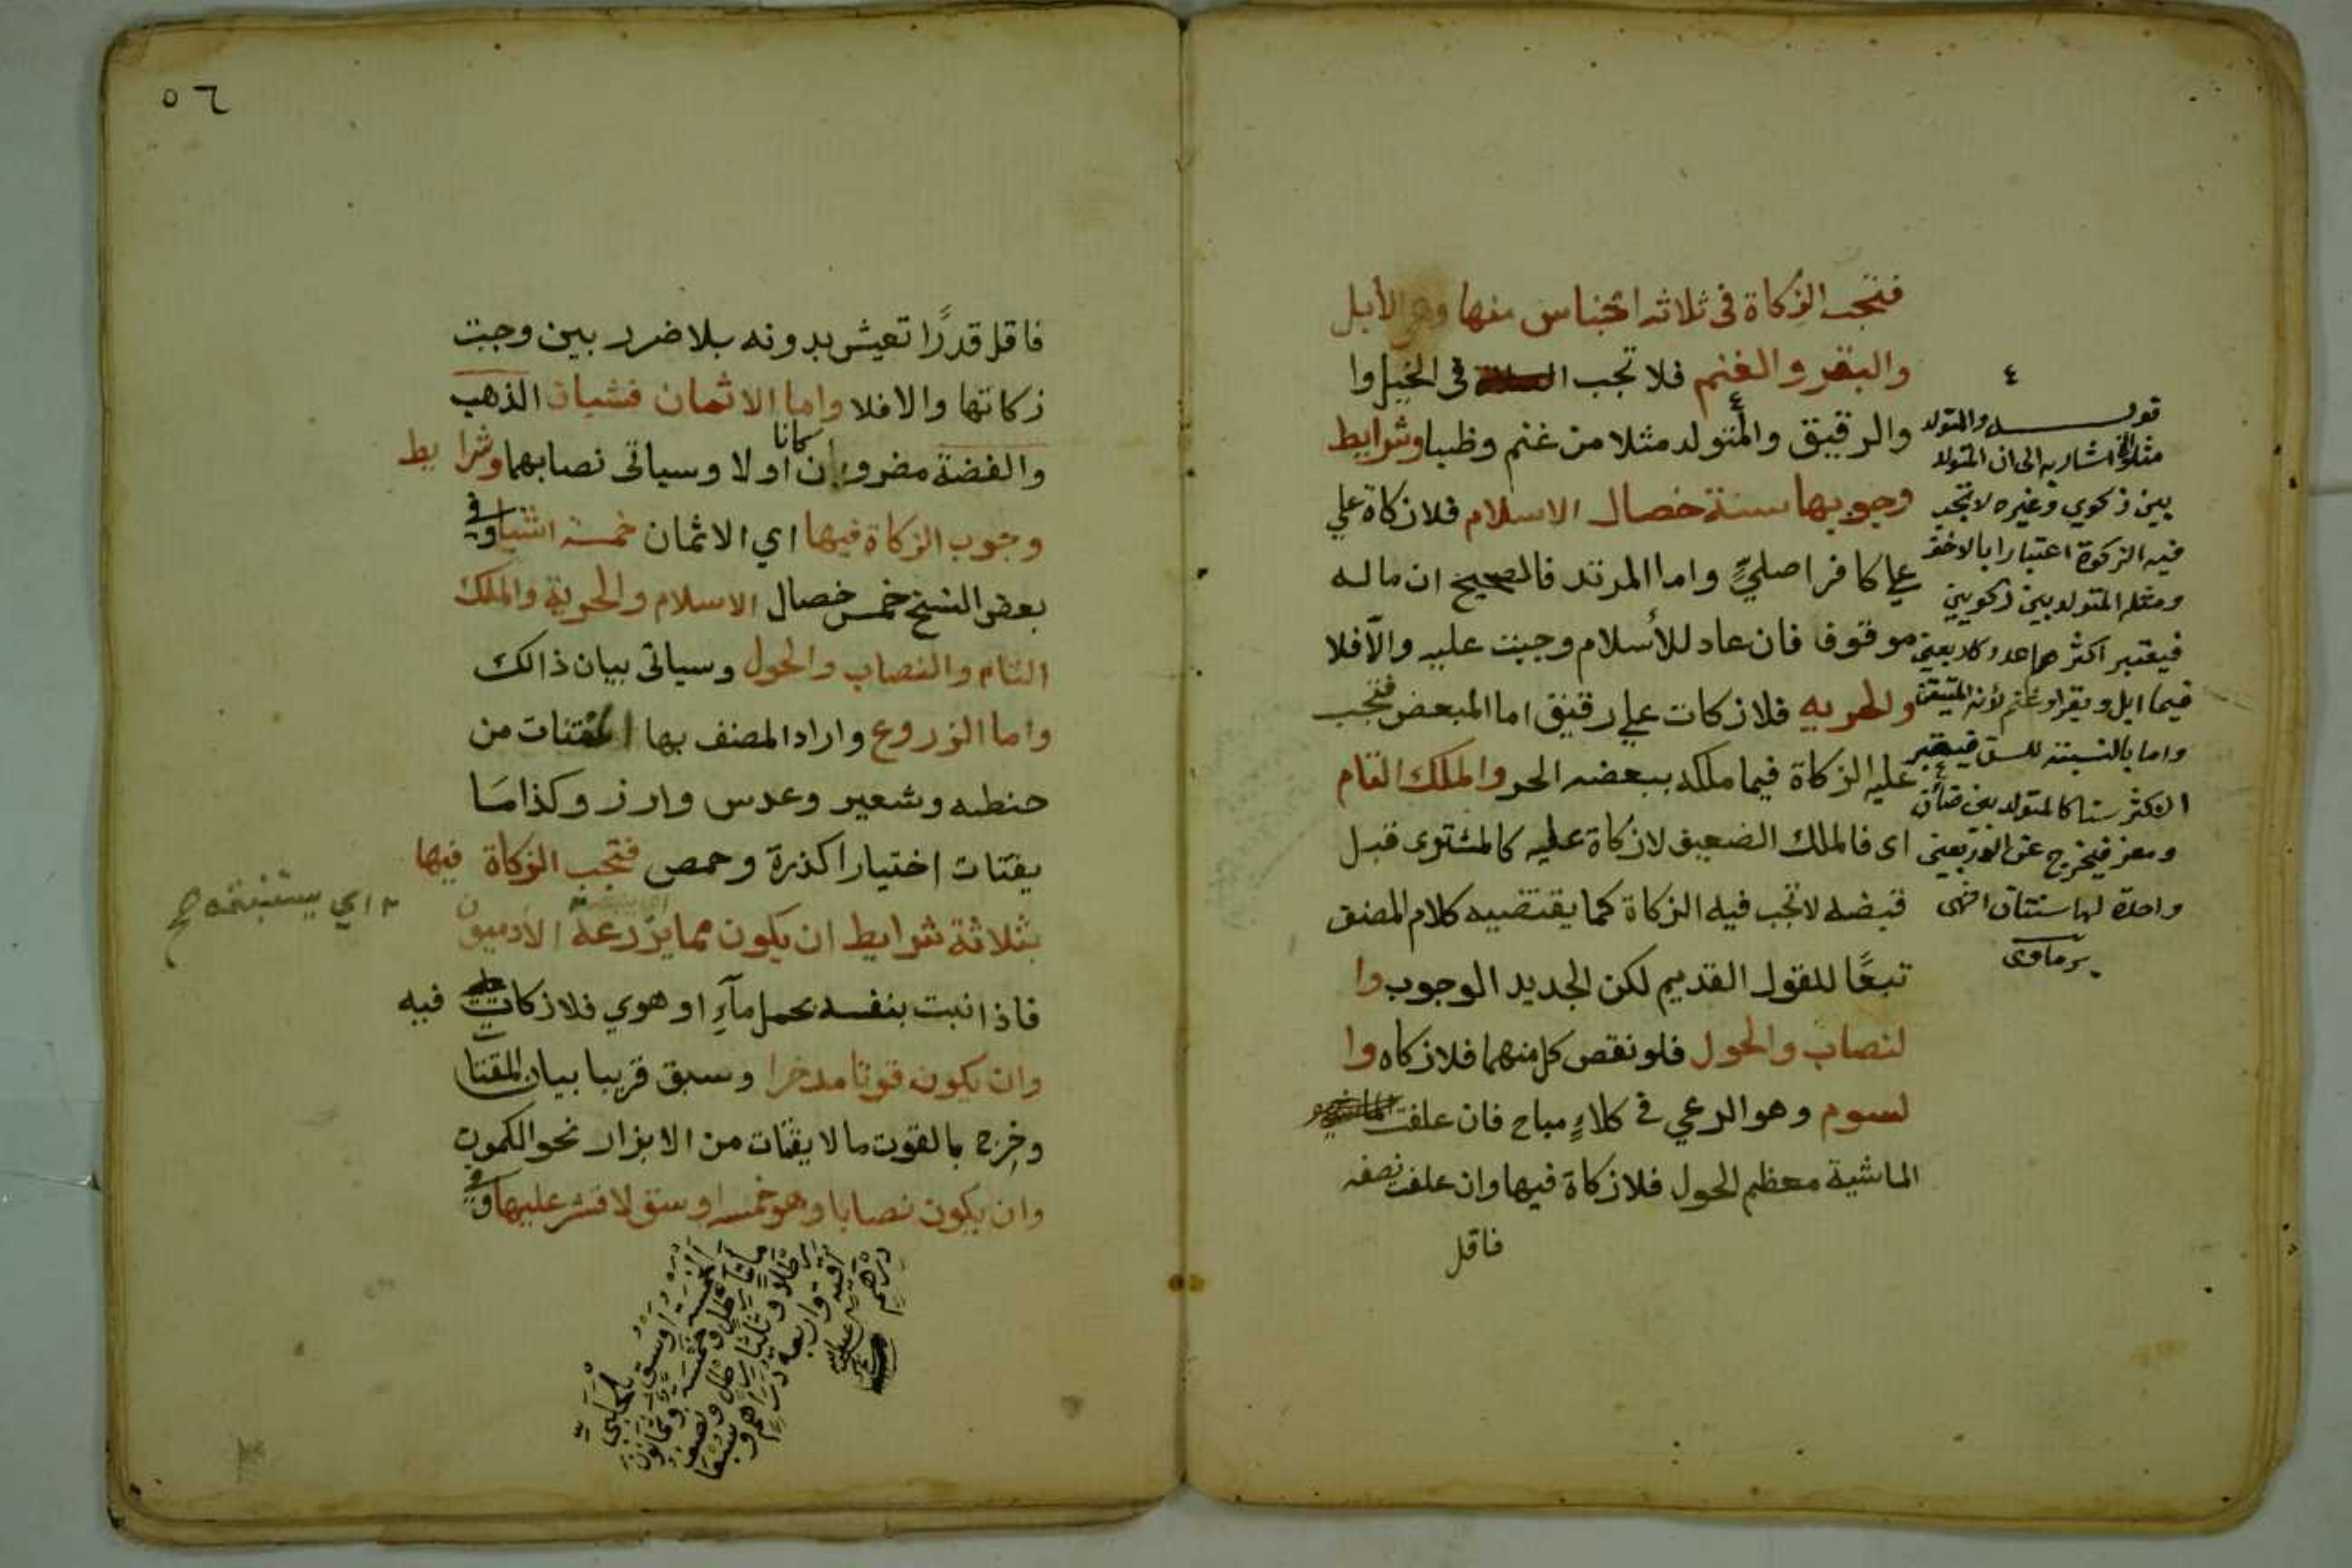 فتجب الزكاة في ثلاثه اجناس منها وهي الأبل
والبقر والغنم فلا تجب في الخيل وا
والرقيق والمتولد مثلا من غنم وظبا وشرايط
وجوبها ستة خصال الاسلام فلا زكاة علي
علي كافر اصليٍّ واما المرتد فالصحيح ان ماله
موقوف فان عاد للأسلام وجبت عليه والآفلا
والحريه فلا زكات علي رقيق اما المبعض فتجب
عليه الزكاة فيما ملكه ببعضه الحر والملك التام
اى فالملك الضعيف لا زكاة عليه كالمشترى قبل
قبضه لا تجب فيه الزكاة كما يقتضيه كلام المصنف
تبعًا للقول القديم لكن الجديد الوجوب وا
لنصاب والحول فلو نقص كل منهما فلا زكاه وا
لسوم وهو الرعي في كلاءٍ مباح فان علفت
الماشية معظم الحول فلا زكاة فيها وان علفت نصفه
فاقل
٤
قوله والمتولد
مثلا الخ اشار به الى ان المتولد
بين زكوي وغيره لا تجب
فيه الزكوة اعتبارا بالاخف
ومثله المتولد بين زكويين
فيعتبر اكثرهما عددا كان يعني
فيما ابل وبقر او غنم لأنه المتيقن
واما بالنسبة للسن فيعتبر
الاكثر سنا كالمتولد بين ضأن
ومعز فيخرج عن اربعين
واحدة لها سنتان انتهى
برماوى
٥٦
فاقل قدرًا تعيش بدونه بلا ضرر بين وجبت
زكاتها والافلا واما الاثمان فشيان الذهب
والفضة مضروبان كانا اولا وسياتى نصابهما وشرايط
وجوب الزكاة فيها اي الاثمان خمسة اشيا وفي
بعض النسخ خمس خصال الاسلام والحرية والملك
التام والنصاب والحول وسياتى بيان ذالك
واما الزروع واراد المصنف بها المقتنات من
حنطه وشعير وعدس وارز وكذا ما
يقتات اختيارا كذرة وحمص فتجب الزكاة فيها
بثلاثة شرايط ان يكون مما يزرعه الآدميون
اي يستنبته
فاذا نبت بنفسه بحمل مآءٍ او هوي فلا زكات فيه
وان يكون قوتا مدخرا وسبق قريبا بيان المقتات
وخرج بالقوت ما لا يقتات من الابزار نحو الكمون
وان يكون نصابا وهو خمسه اوسق لا قشر عليها وفي